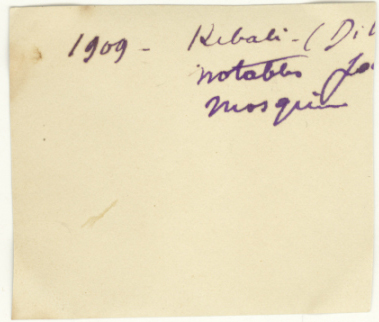 1909 - Kebali - (Di
notables
mosquée